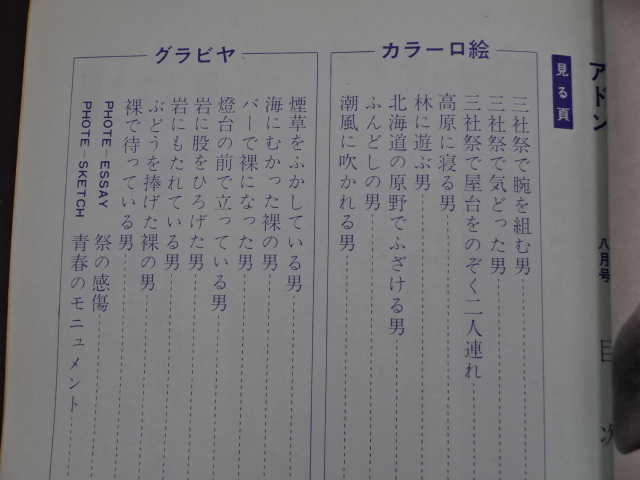 アドン
八月号
目次
見る頁
カラー口絵
三社祭で腕を組む男
三社祭で気どった男
三社祭で屋台をのぞく二人連れ
高原に寝る男
林に遊ぶ男
北海道の原野でふざける男
ふんどしの男
潮風に吹かれる男
グラビヤ
煙草をふかしている男
海にむかった裸の男
バーで裸になった男
燈台の前で立っている男
岩に股をひろげた男
岩にもたれている男
ぶどうを捧げた裸の男
裸で待っている男
PHOTE–ESSAY 祭の感傷
PHOTE–SKETCH 青春のモニュメント